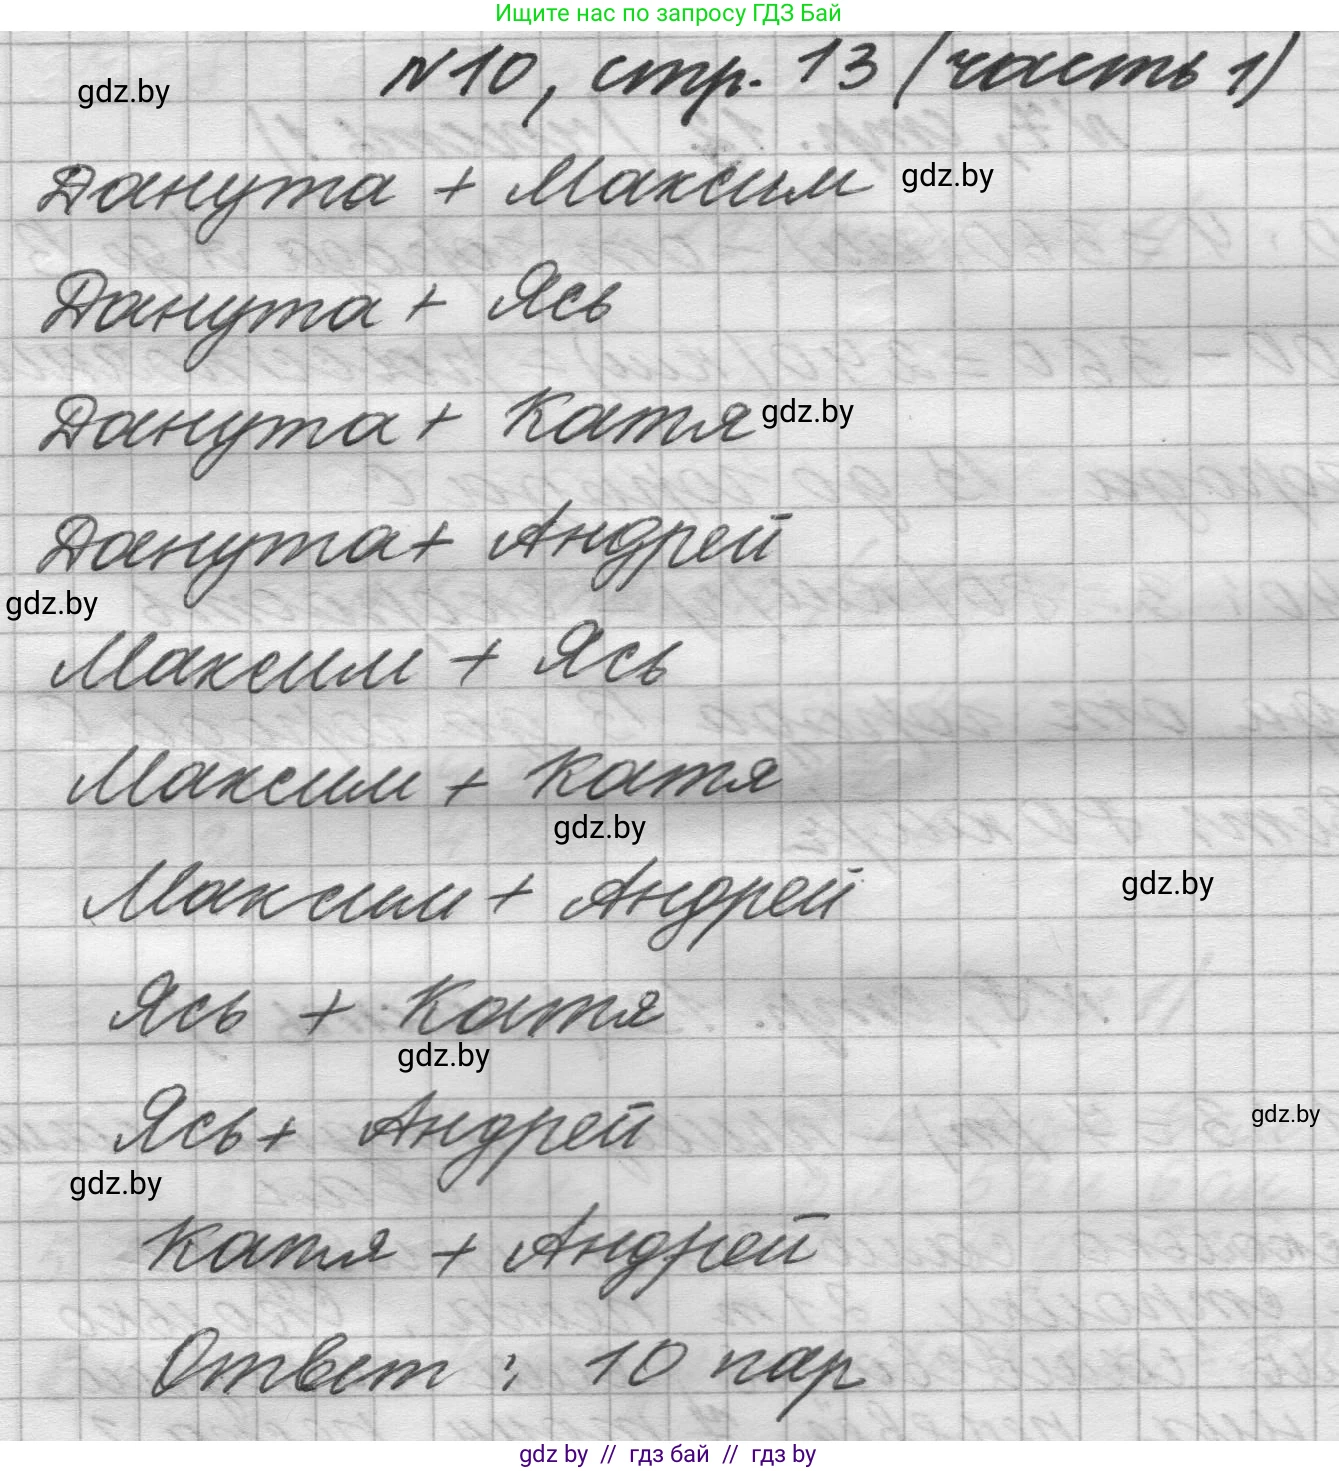 Ищите нас по запросу ГДЗ Бай
№10, стр. 13 (часть 1)
gdz.by
Данута + Максим gdz.by
Данута + Ясь
Данута + Катя gdz.by
Данута + Андрей
gdz.by
Максим + Ясь
Максим + Катя
gdz.by
Максим + Андрей gdz.by
Ясь + Катя
gdz.by
Ясь + Андрей gdz.by
gdz.by
Катя + Андрей
Ответ: 10 пар
gdz by // гдз бай // гдз by